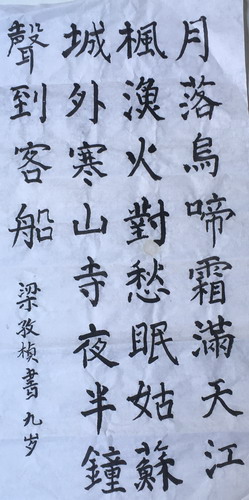 月落烏啼霜滿天江
楓漁火對愁眠姑蘇
城外寒山寺夜半鐘
聲到客船
梁孜楨書九岁